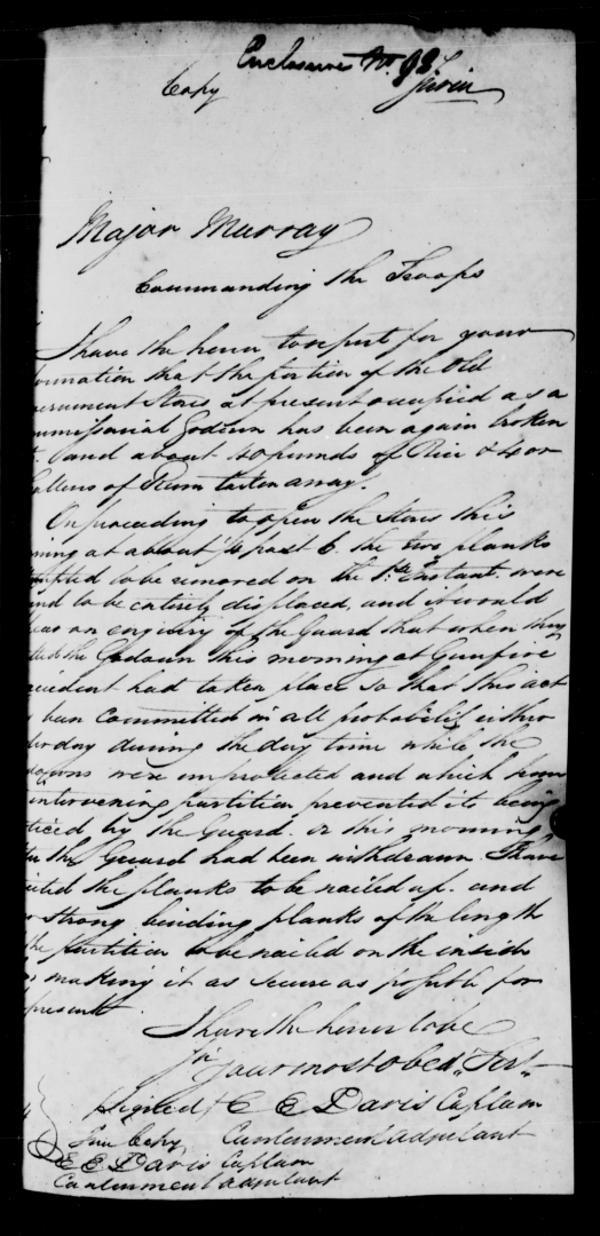 Enclosure No. 92
Copy
Major Murray
Commanding the Troops
I have the honor to report for your
formation that the portion of the Old
vernment Stores at present occupied as a
ommissariat Godown has been again broken
and about 40 pounds of Rice & 4 or
allons of Rum taken away.
On proceeding to open the Stores this
ning at about ¼ past 6. the two planks
mpted to be removed on the 1st Instant. were
und to be entirely displaced, and it would
ear on enquiry of the Guard that when they
the Godown this morning at Gunfire
ccident had taken place so that this act
been committed in all probabilit either
terday during the day time while the
downs were unprotected and which from
intervening partition prevented its being
ticed by the Guard. or this morning
ter the Guard had been withdrawn. I have
the planks to be nailed up. and
o strong binding planks of the length
the partition to be nailed on the inside
making it as secure as possible for
present.
I have the honor to be
Sir
Your most obed„ Sert„
Signed / C E Davis Captain
True Copy, Cantonment Adjutant
E E Davis Captain
Cantonment Adjutant